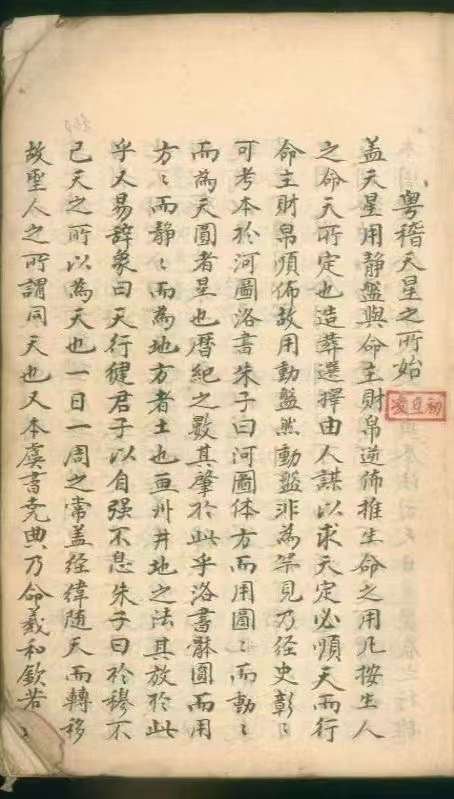 粤稽天星之所始
盖天星用静盤與命主財帛逆佈推生命之用凡按生人
之命天所定也造葬選擇由人謀以求天定必順天而行
命主財帛順佈故用動盤然動盤非為罕見乃径史彰〻
可考本於河圖洛書朱子曰河圖体方而用圓〻而動〻
而為天圓者星也暦紀之數其肇於此乎洛書體圓而用
方〻而静〻而為地方者土也画州井地之法其放於此
乎又易辞象曰天行健君子以自强不息朱子曰於穆不
已天之所以為天也一日一周之常盖经緯随天而轉移
故聖人之所謂同天也又本虞書尭典乃命羲和欽若〻